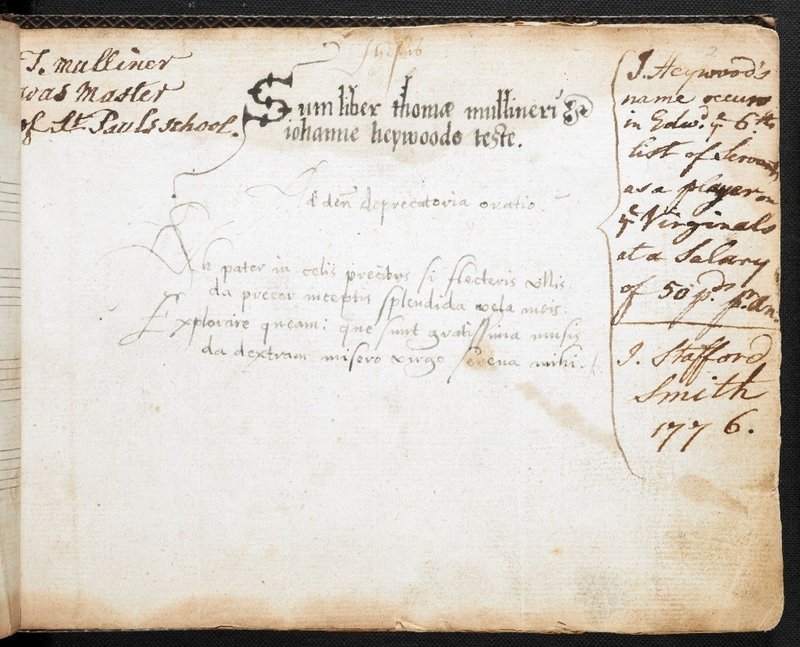 Jhesus
T. Mulliner
was Master
of St. Pauls school.
Sum liber thomæ mullineri
iohanne heywoode teste.
Ad deũ deprecatoria oratio
pater in celis precibus si flecteris ullis
da precor inceptis splendida vela meis.
Explorare queam: que sunt gratissima musis
da dextram misero virgo serena mihi.
2
J. Heywood's
name occurs
in Edwd. ye 6ths
list of Servants
as a player on
ye Virginals
at a Salary
of 50 pds. pr. An.
J. Stafford
Smith
1776.